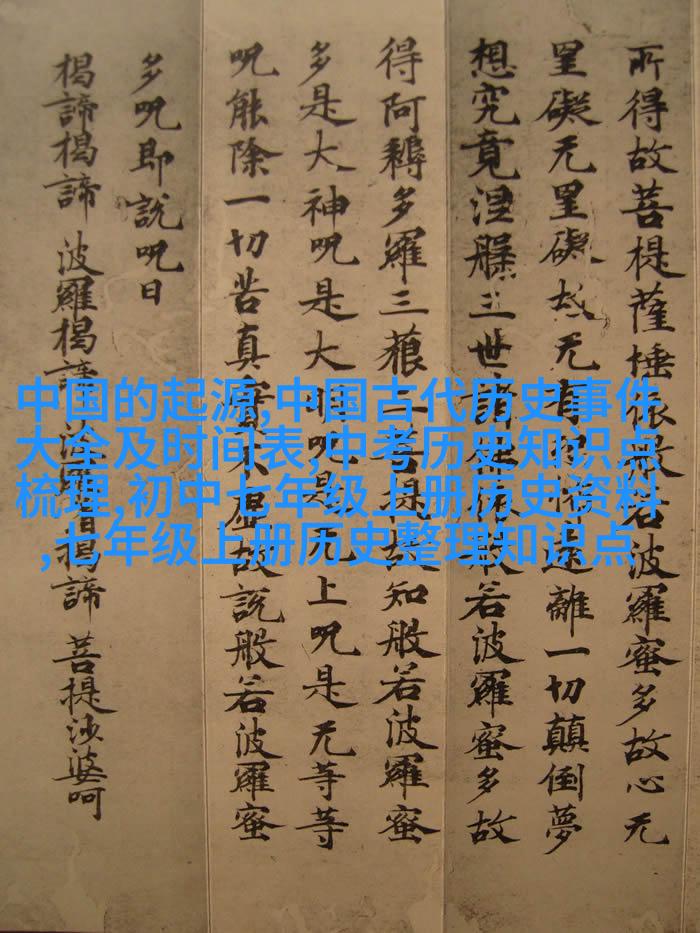 所得故菩提薩埵依般若波羅蜜多故心无
罣礙无罣礙故无有恐怖遠離一切顛倒夢
想究竟涅槃三世諸佛依般若波羅蜜多故
得阿耨多羅三藐三菩提故知般若波羅蜜
多是大神呪是大明呪是无上呪是无等等
呪能除一切苦真實不虛故說般若波羅蜜
多呪即說呪曰
揭諦揭諦 波羅揭諦 波羅僧揭諦 菩提沙婆呵
中国的起源,中国古代历史事件
大全及时间表,中考历史知识点
梳理,初中七年级上册历史资料
,七年级上册历史整理知识点